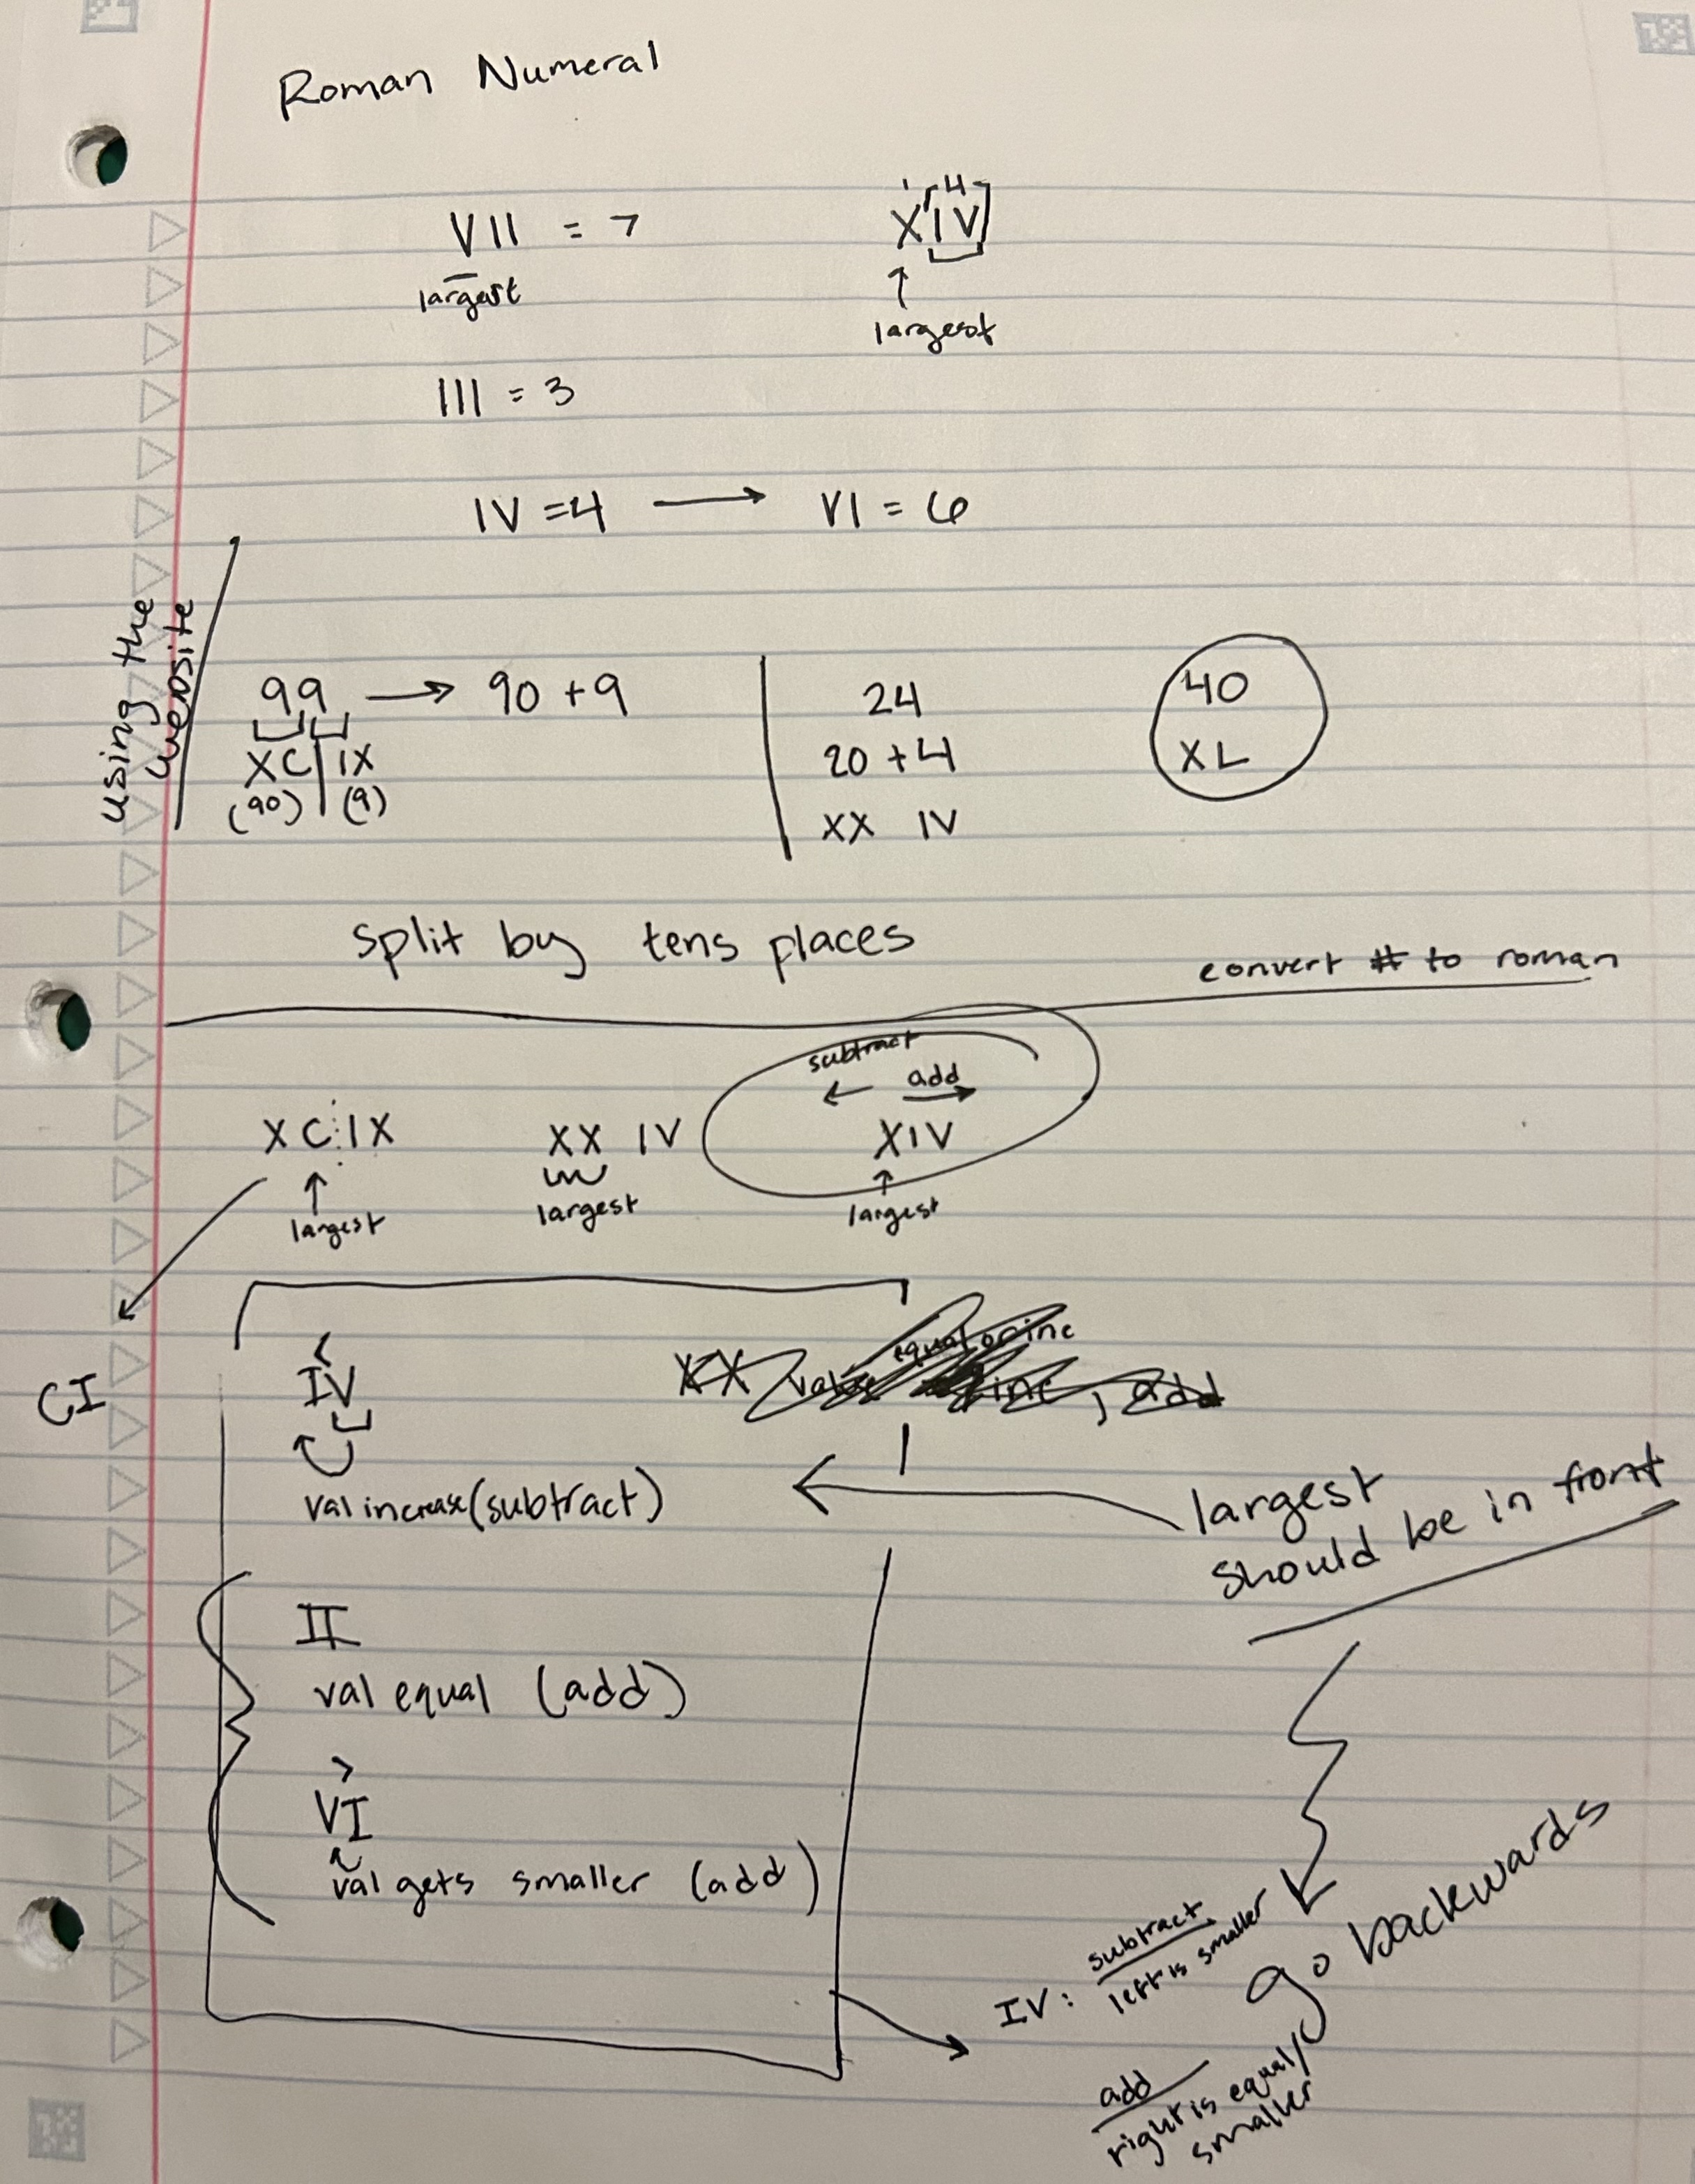 Roman Numeral
VII = 7
largest
4
XIV
↑
largest
III = 3
IV = 4 → VI = 6
using the
website
99 → 90 + 9
XC | IX
(90) | (9)
24
20 + 4
XX IV
40
XL
split by tens places
convert # to roman
XC IX
↑
largest
XX IV
largest
subtract
← add →
XIV
↑
largest
CI
<
IV
val increase (subtract)
XX value equal or inc
inc, add
largest
should be in front
II
val equal (add)
>
VI
val gets smaller (add)
go backwards
IV: subtract
left is smaller
add
right is equal/
smaller